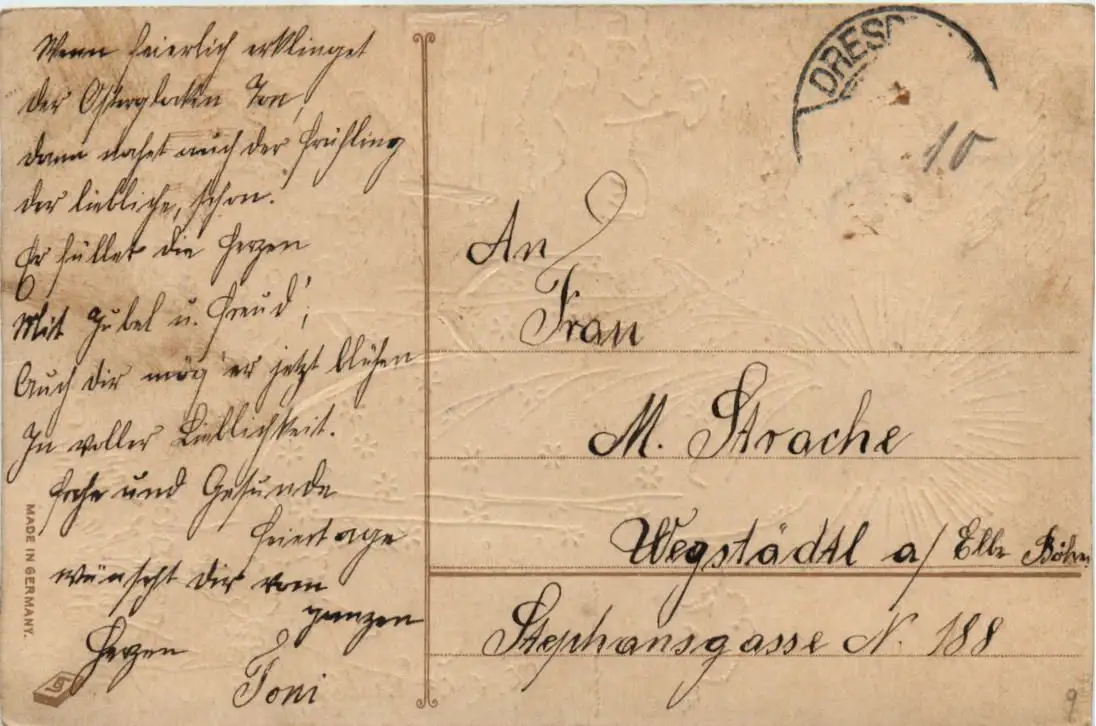 Wenn feierlich erklinget
der Osterglocken Ton,
dann nahet auch der Frühling
der liebliche, schon.
Er füllet die Herzen
Mit Jubel u. Freud';
Auch dir mög' er jetzt blühen
In voller Lieblichkeit.
Frohe und Gesunde
Feiertage
wünscht Dir vom
ganzen
Herzen
Toni
MADE IN GERMANY.
DRESD
10
An
Frau
M. Strache
Wegstädtl a/ Elbe Böhm
Stephansgasse N. 188
9